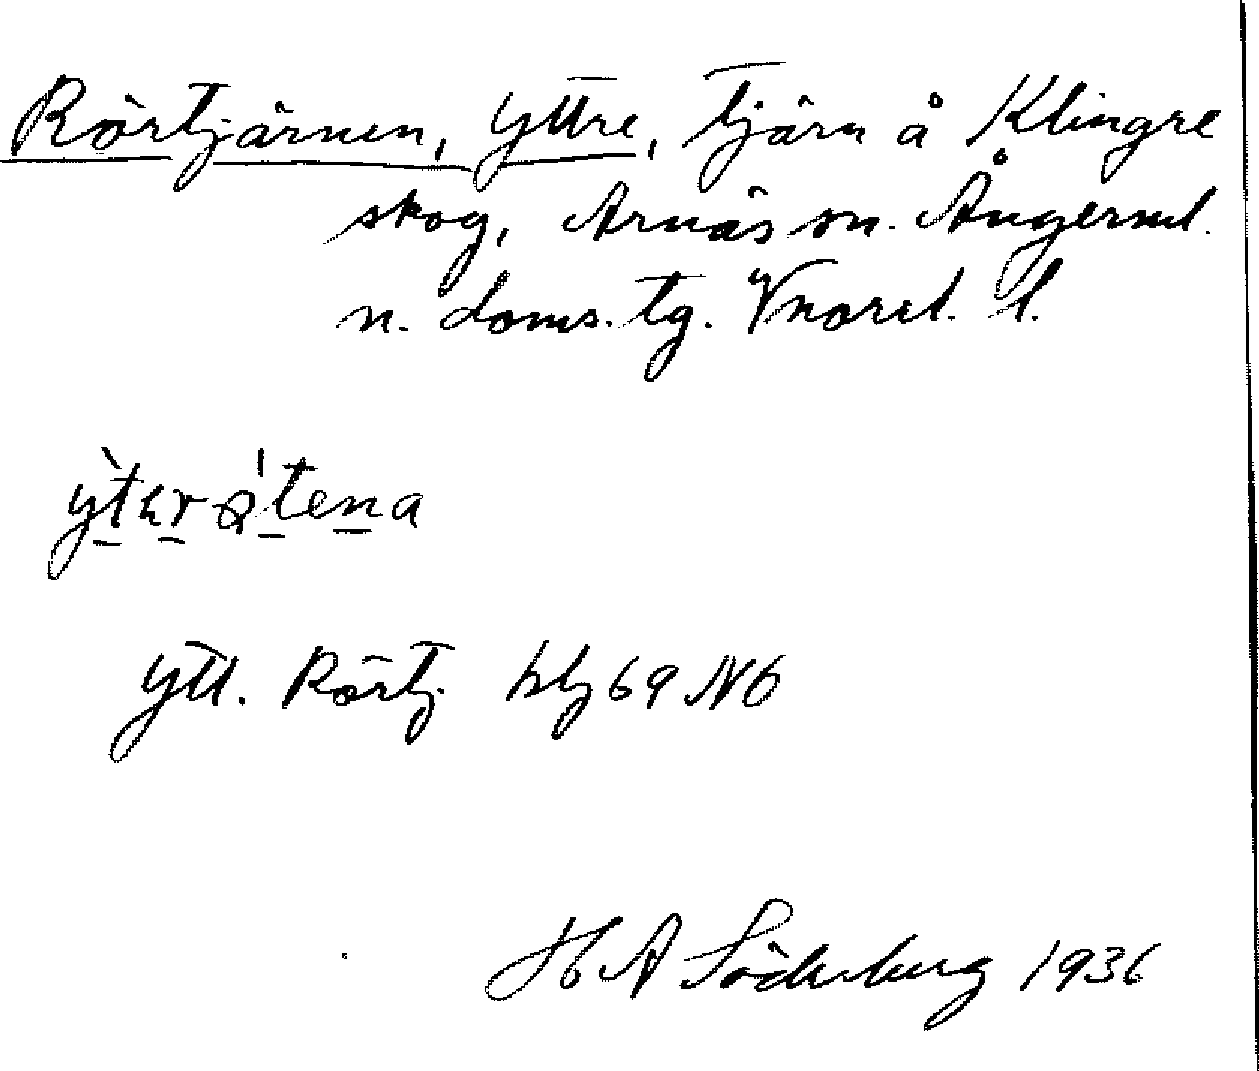 Rörtjärnen, Yttre, Tjärn å Klingre
skog, Arnäs sn. Ångerml.
n. doms. tg. Vnorrl. l.
ytt. Rörtj. blz 69 NO
H A Söderberg 1936